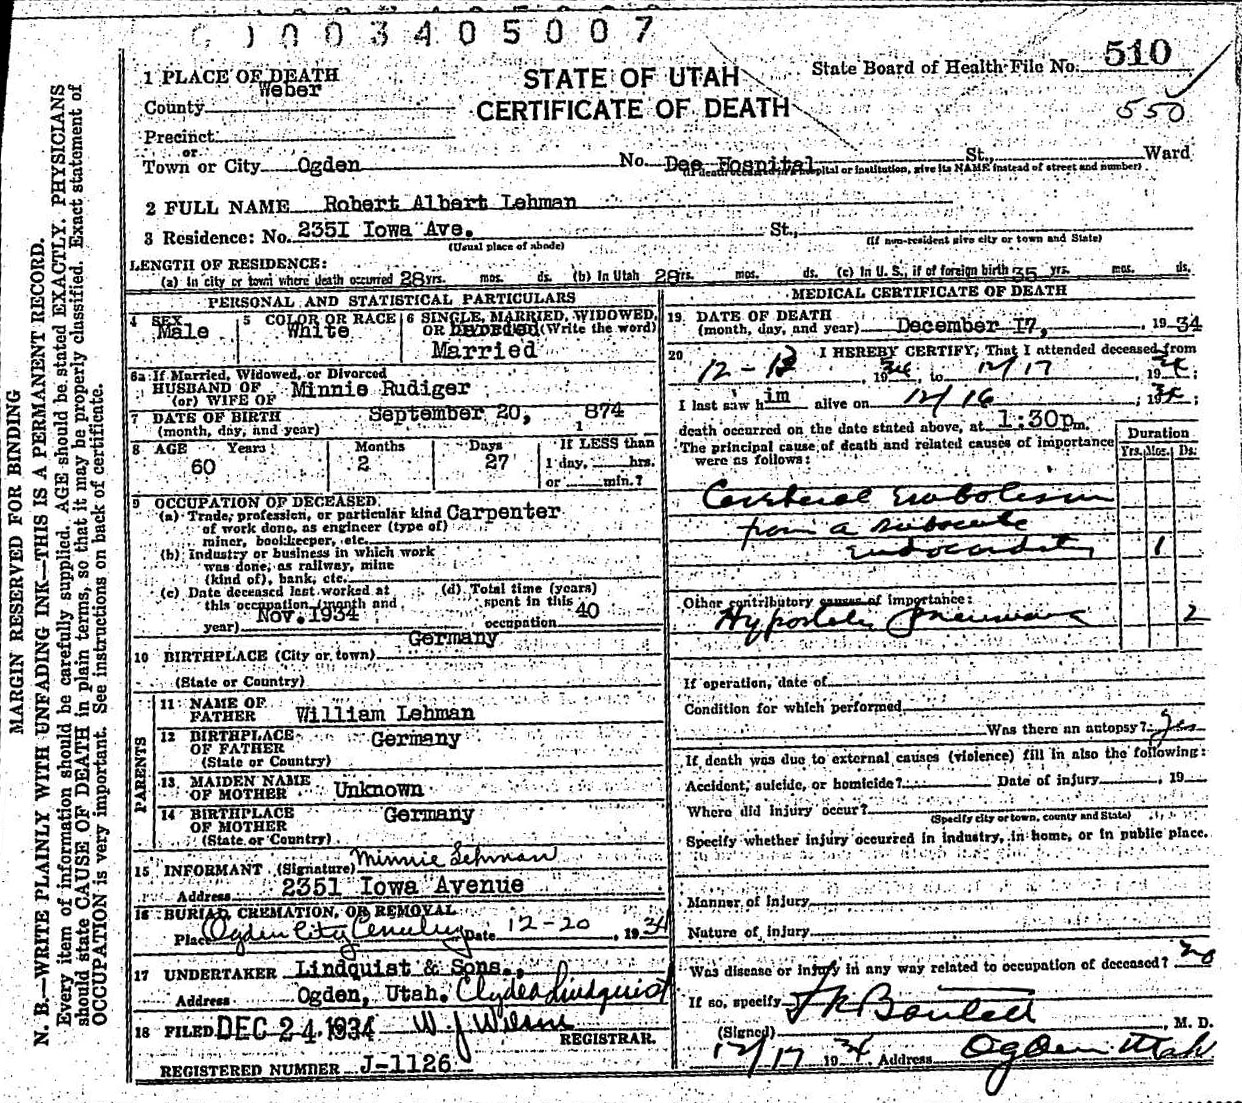 003405007
STATE OF UTAH
CERTIFICATE OF DEATH
State Board of Health File No. 510
550
1 PLACE OF DEATH
County Weber
Precinct
or
Town or City Ogden No. Dee Hospital St., Ward
(If death occurred in a hospital or institution, give its NAME instead of street and number)
2 FULL NAME Robert Albert Lehman
3 Residence: No. 2351 Iowa Ave. St.,
(Usual place of abode) (If non-resident give city or town and State)
LENGTH OF RESIDENCE:
(a) In city or town where death occurred 28 yrs. mos. ds. (b) In Utah 28 yrs. mos. ds. (c) In U. S., if of foreign birth 35 yrs. mos. ds.
PERSONAL AND STATISTICAL PARTICULARS
4 SEX Male
5 COLOR OR RACE White
6 SINGLE, MARRIED, WIDOWED, OR DIVORCED (Write the word) Married
6a If Married, Widowed, or Divorced
HUSBAND OF
(or) WIFE OF Minnie Rudiger
7 DATE OF BIRTH
(month, day, and year) September 20, 1874
8 AGE Years 60 Months 2 Days 27 If LESS than
1 day, hrs.
or min.?
9 OCCUPATION OF DECEASED
(a) Trade, profession, or particular kind Carpenter
of work done, as engineer (type of)
miner, bookkeeper, etc.
(b) Industry or business in which work
was done, as railway, mine
(kind of), bank, etc.
(c) Date deceased last worked at
this occupation (month and
year) Nov. 1934
(d) Total time (years)
spent in this
occupation 40
10 BIRTHPLACE (City or town) Germany
(State or Country)
PARENTS
11 NAME OF
FATHER William Lehman
12 BIRTHPLACE
OF FATHER Germany
(State or Country)
13 MAIDEN NAME
OF MOTHER Unknown
14 BIRTHPLACE
OF MOTHER Germany
(State or Country)
15 INFORMANT (Signature) Minnie Lehman
Address 2351 Iowa Avenue
16 BURIAL, CREMATION, OR REMOVAL
Place Ogden City Cemetery Date 12-20, 1934
17 UNDERTAKER Lindquist & Sons.,
Address Ogden, Utah. Clyde Lindquist
18 FILED DEC 24 1934 W. J. Wilson
REGISTRAR.
REGISTERED NUMBER J-1126
MEDICAL CERTIFICATE OF DEATH
19 DATE OF DEATH
(month, day, and year) December 17, 1934
20 I HEREBY CERTIFY, That I attended deceased from
12-13, 1934 to 12/17, 1934;
I last saw him alive on 12/16, 1934;
death occurred on the date stated above, at 1:30p m.
The principal cause of death and related causes of importance
were as follows:
Duration
Yrs. Mos. Ds.
Cerebral Embolism
from a subacute
endocarditis 1
Other contributory causes of importance:
Hypostatic Pneumonia 2
If operation, date of
Condition for which performed
Was there an autopsy? yes
If death was due to external causes (violence) fill in also the following:
Accident, suicide, or homicide? Date of injury, 19
Where did injury occur?
(Specify city or town, county and State)
Specify whether injury occurred in industry, in home, or in public place.
Manner of injury
Nature of injury
Was disease or injury in any way related to occupation of deceased? no
If so, specify
(Signed) , M. D.
12/17 1934 Address Ogden Utah
MARGIN RESERVED FOR BINDING
N. B.—WRITE PLAINLY WITH UNFADING INK—THIS IS A PERMANENT RECORD.
Every item of information should be carefully supplied. AGE should be stated EXACTLY. PHYSICIANS
should state CAUSE OF DEATH in plain terms, so that it may be properly classified. Exact statement of
OCCUPATION is very important. See instructions on back of certificate.